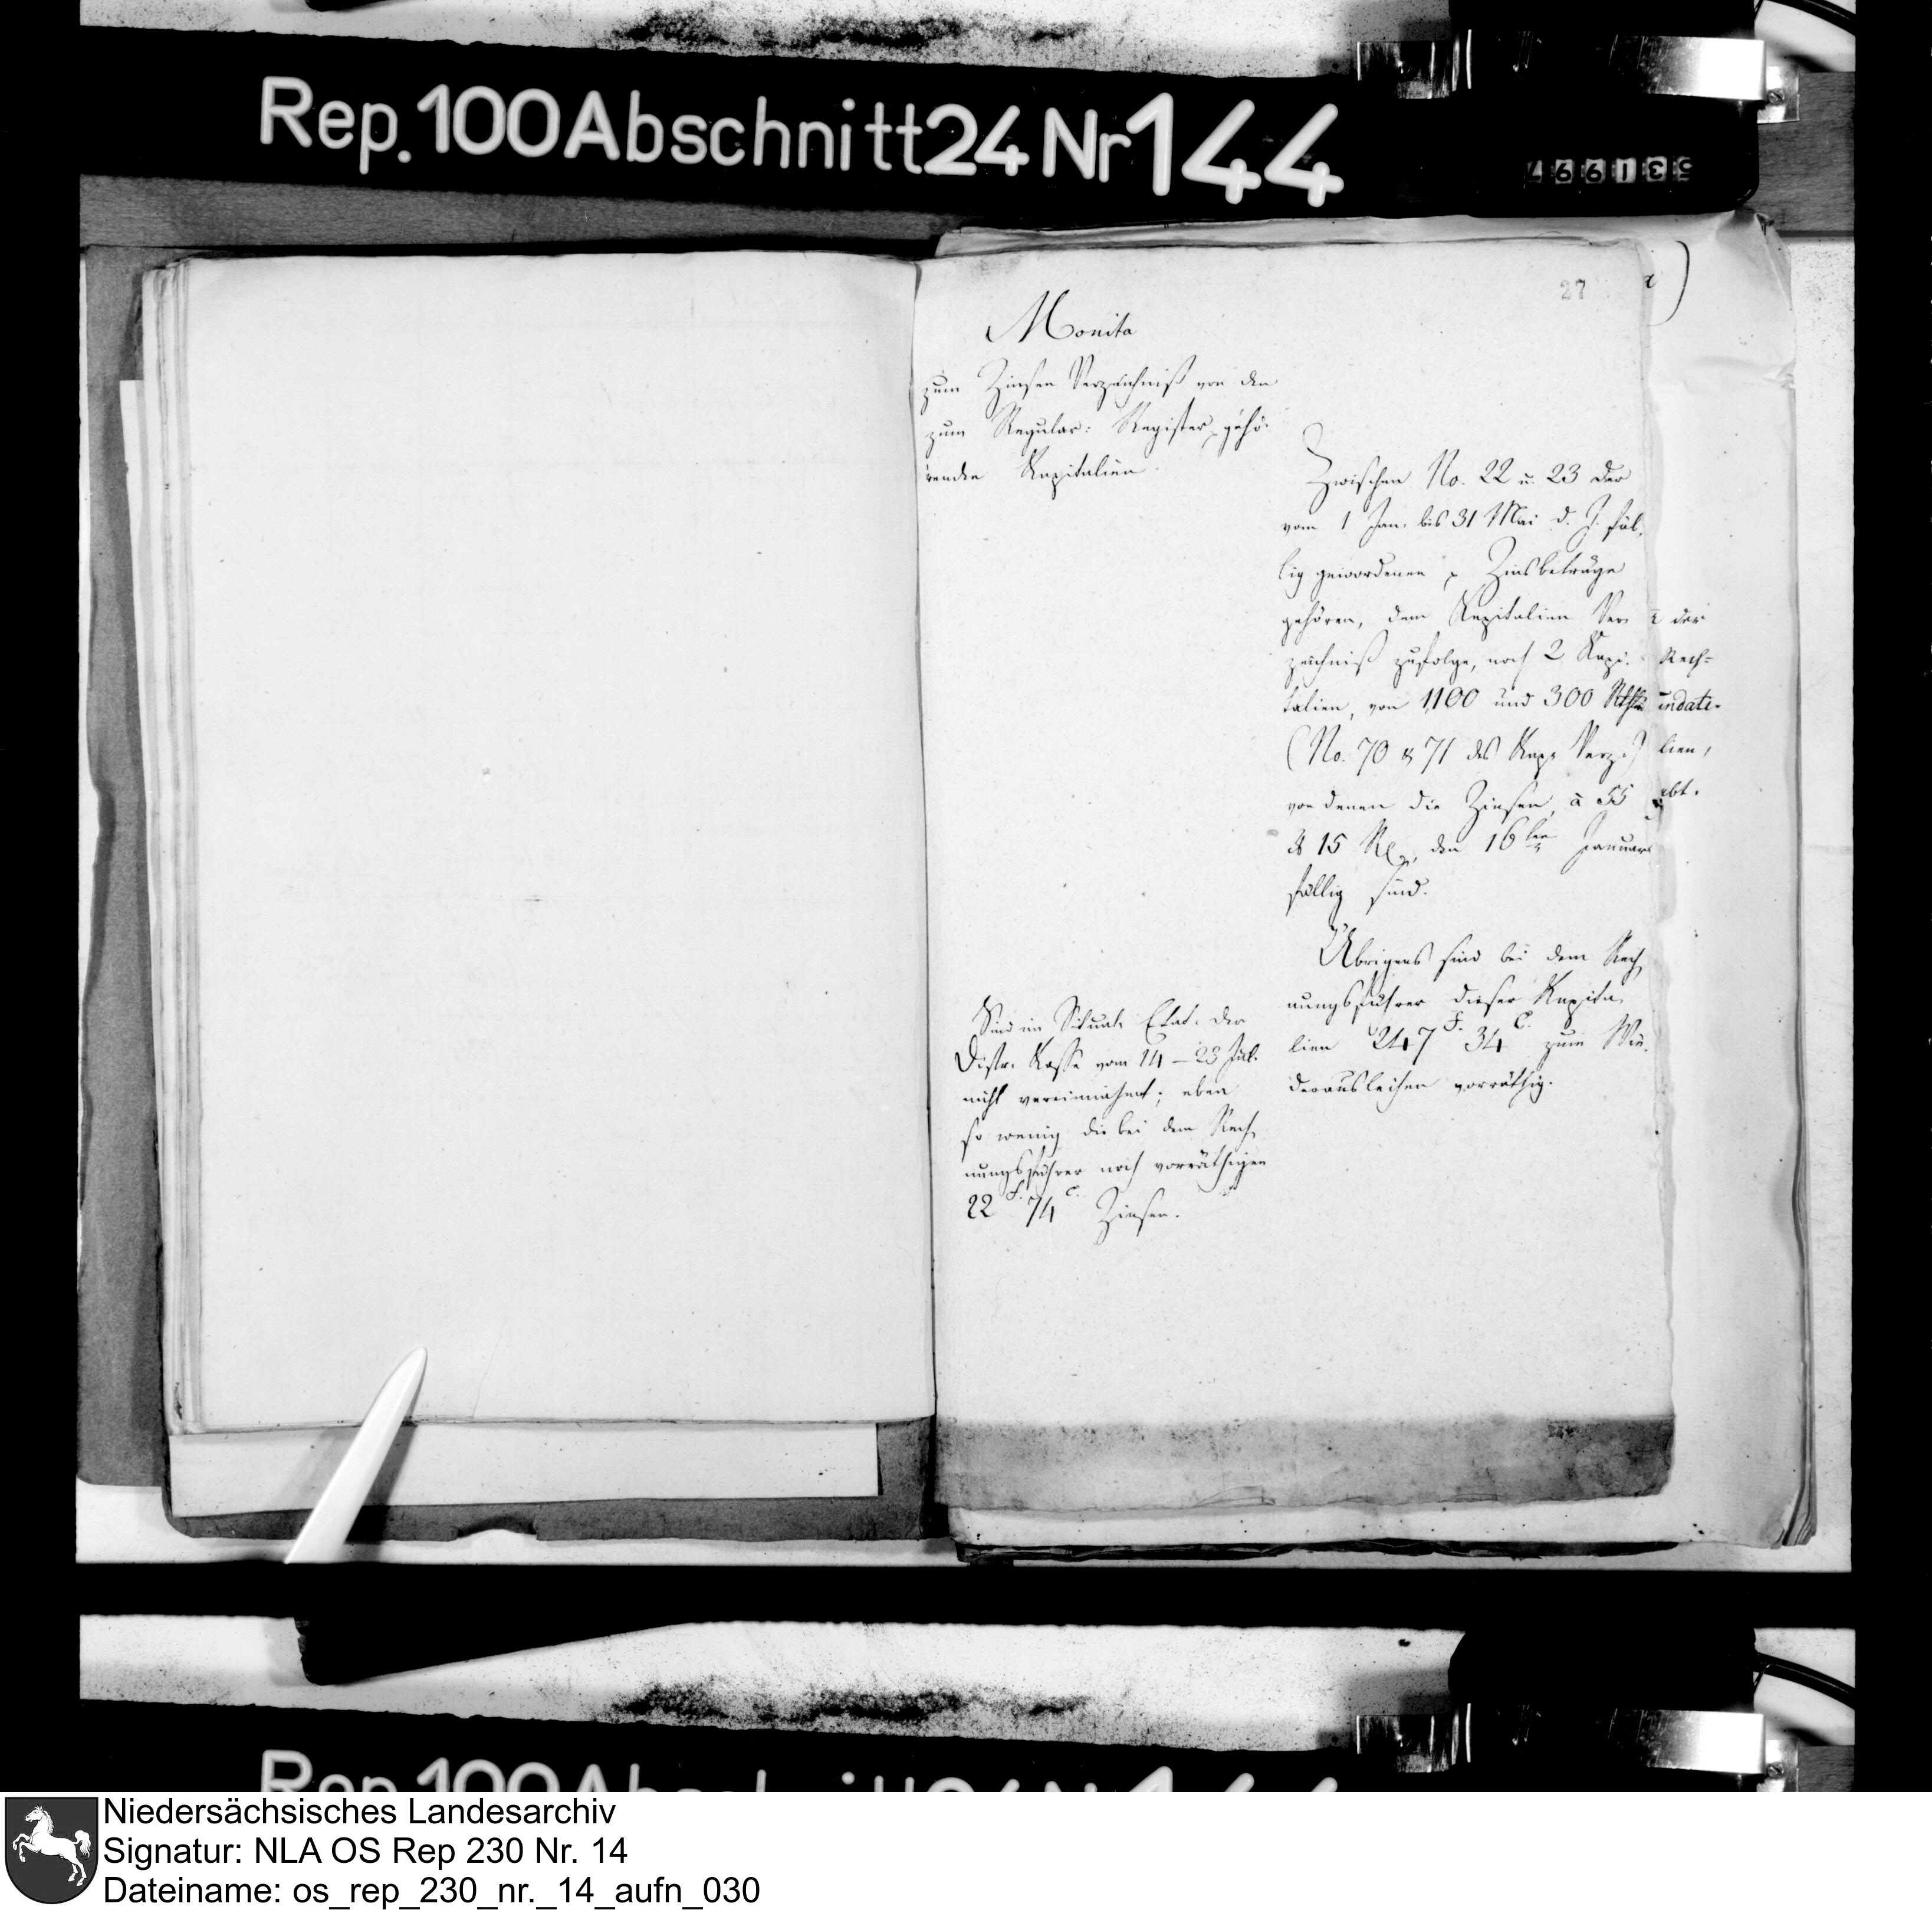 Rep.100Abschnitt24Nr144
531997
27
Monita
zum Zinsen Verzeichniß von den
zum Regular: Register gehö-
renden Kapitalien.
Zwischen No. 22 u. 23 der
vom 1 Jan. bis 31 Mai d. J. fäl,
lig gewordenen Zinsbeträge
gehören, dem Kapitalien Ver,
zeichniß zufolge, noch 2 Kapi,
talien, von 1100 und 300 Rthlr
(No. 70 & 71 des Kap. Verz.)
von denen die Zinsen, à 55
& 15 Rt, den 16ten Januar
fällig sind.
Übrigens sind bei dem Rech,
nungsführer dieser Kapita,
lien 247 F. 34 C. zum Wie,
derausleihen vorräthig.
Sind im Situat. Etat. der
Distr. Kasse vom 14 – 23 Jul.
nicht vereinnahmt; eben
so wenig die bei dem Rech,
nungsführer noch vorräthigen
22 F. 74 C. Zinsen.
der
Rech=
undati-
lien,
ebt.
Niedersächsisches Landesarchiv
Signatur: NLA OS Rep 230 Nr. 14
Dateiname: os_rep_230_nr._14_aufn_030